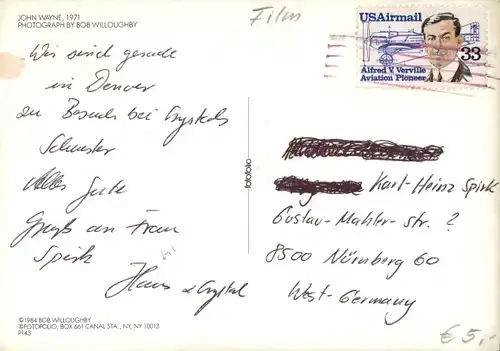 JOHN WAYNE, 1971
PHOTOGRAPH BY BOB WILLOUGHBY
Film
USAirmail
33
Alfred V. Verville
Aviation Pioneer
Wir sind gerade
in Denver
zu Besuch bei Crystals
Schwester
Alles Gute
Gruß an Frau
Spirk
Hans & Crystal
fotofolio
Karl-Heinz Spirk
Gustav-Mahler-Str. ?
8500 Nürnberg 60
West-Germany
©1984 BOB WILLOUGHBY
©FOTOFOLIO, BOX 661 CANAL STA., NY, NY 10013
P143
€ 5,-